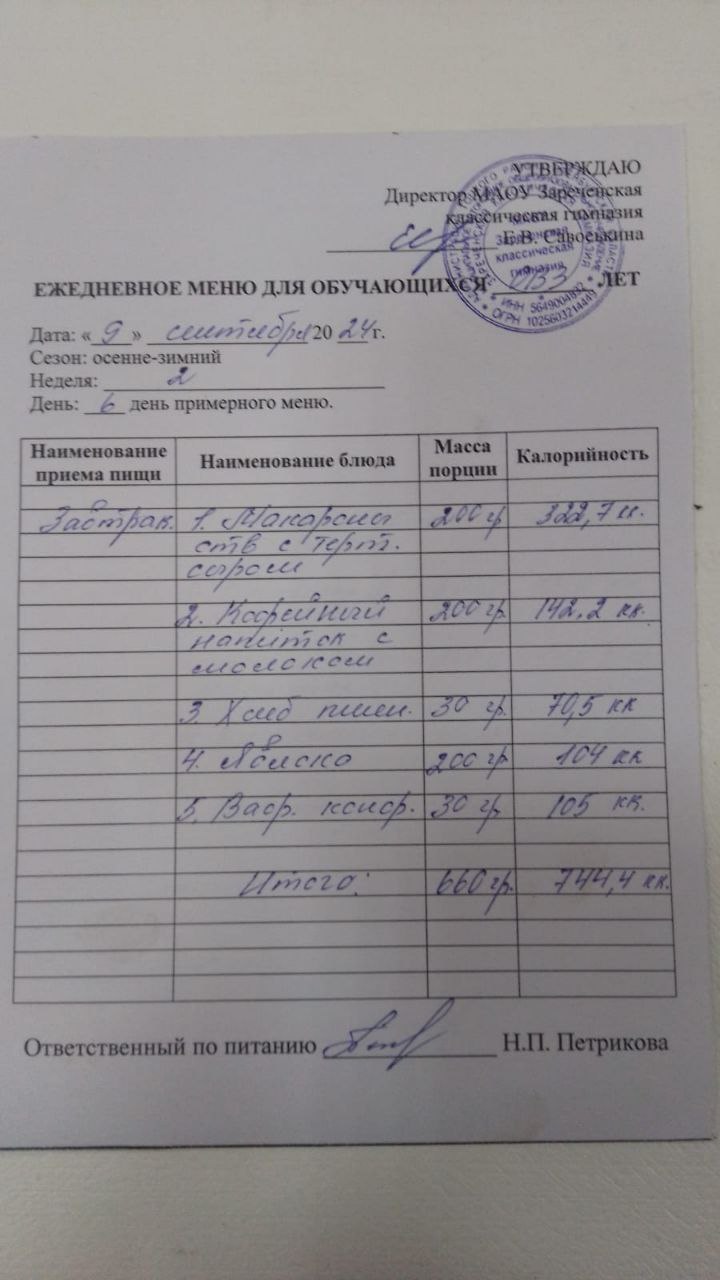 УТВЕРЖДАЮ
Директор МАОУ Зареченская
классическая гимназия
Е.В. Савоськина
ЕЖЕДНЕВНОЕ МЕНЮ ДЛЯ ОБУЧАЮЩИХСЯ ОВЗ ЛЕТ
Зареченская
классическая
гимназия
ИНН 5649004892
ОГРН 1025603214449
Дата: «9» сентября 2024 г.
Сезон: осенне-зимний
Неделя: 2
День: 6 день примерного меню.
Наименование приема пищи Наименование блюда Масса порции Калорийность
Завтрак. 1. Макароны 200 гр 322,7 к.
отв с терт.
сыром
2. Кофейный 200 гр. 142,2 кк.
напиток с
молоком
3. Хлеб пшен. 30 гр. 70,5 кк
4. Яблоко 200 гр. 104 кк
5. Ваф. конф. 30 гр. 105 кк.
Итого: 660 гр. 744,4 кк.
Ответственный по питанию Н.П. Петрикова